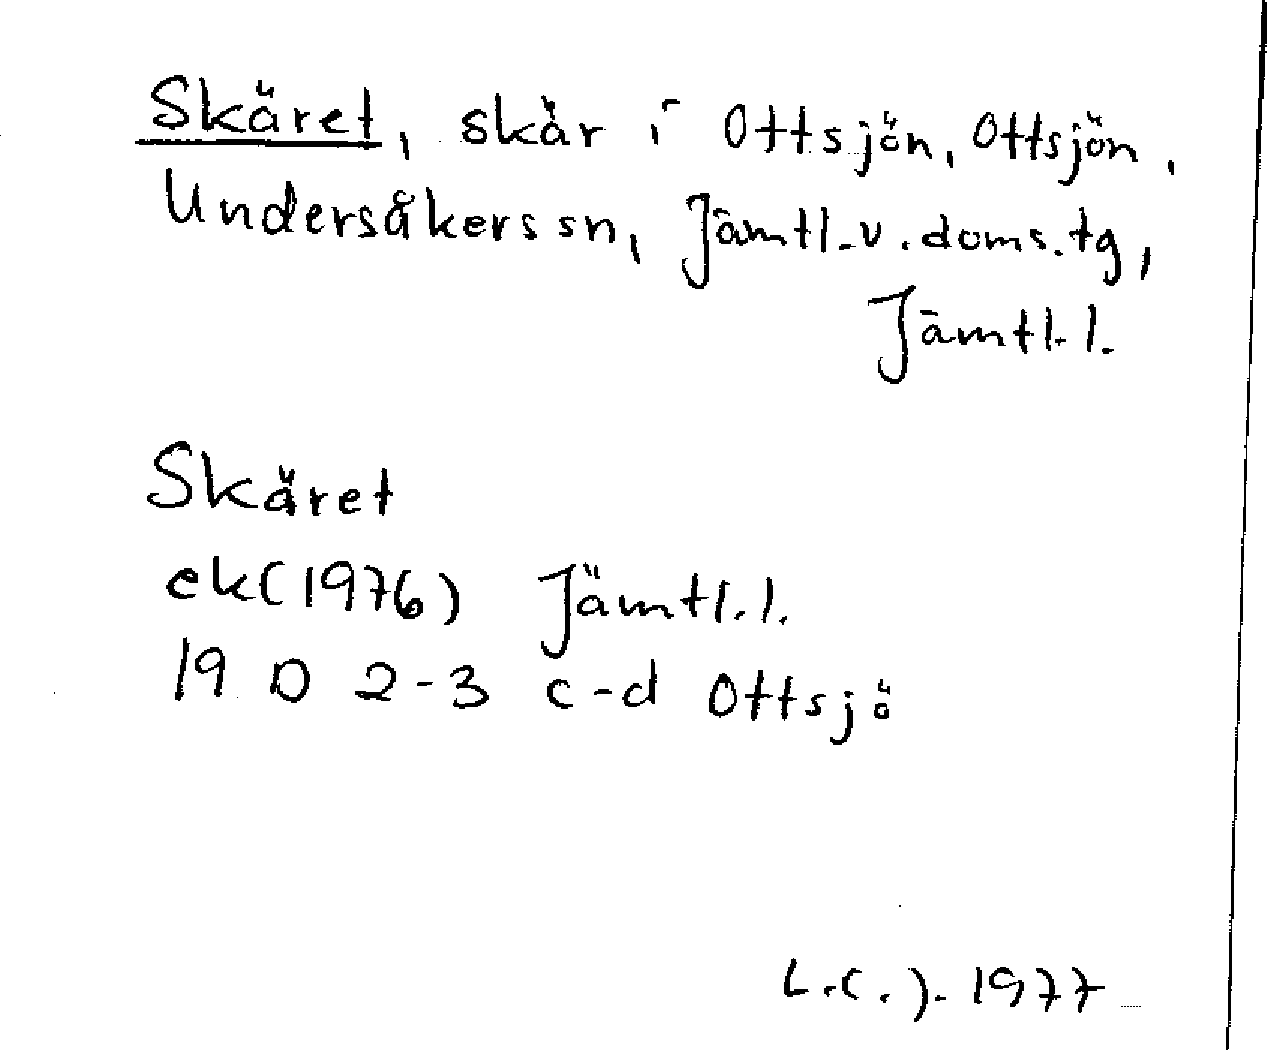 Skäret, skär i Ottsjön, Ottsjön,
Undersåkers sn, Jämtl. v. doms. tg,
Jämtl. l.
Skäret
ek (1976) Jämtl. l.
19 D 2-3 c-d Ottsjö
1977